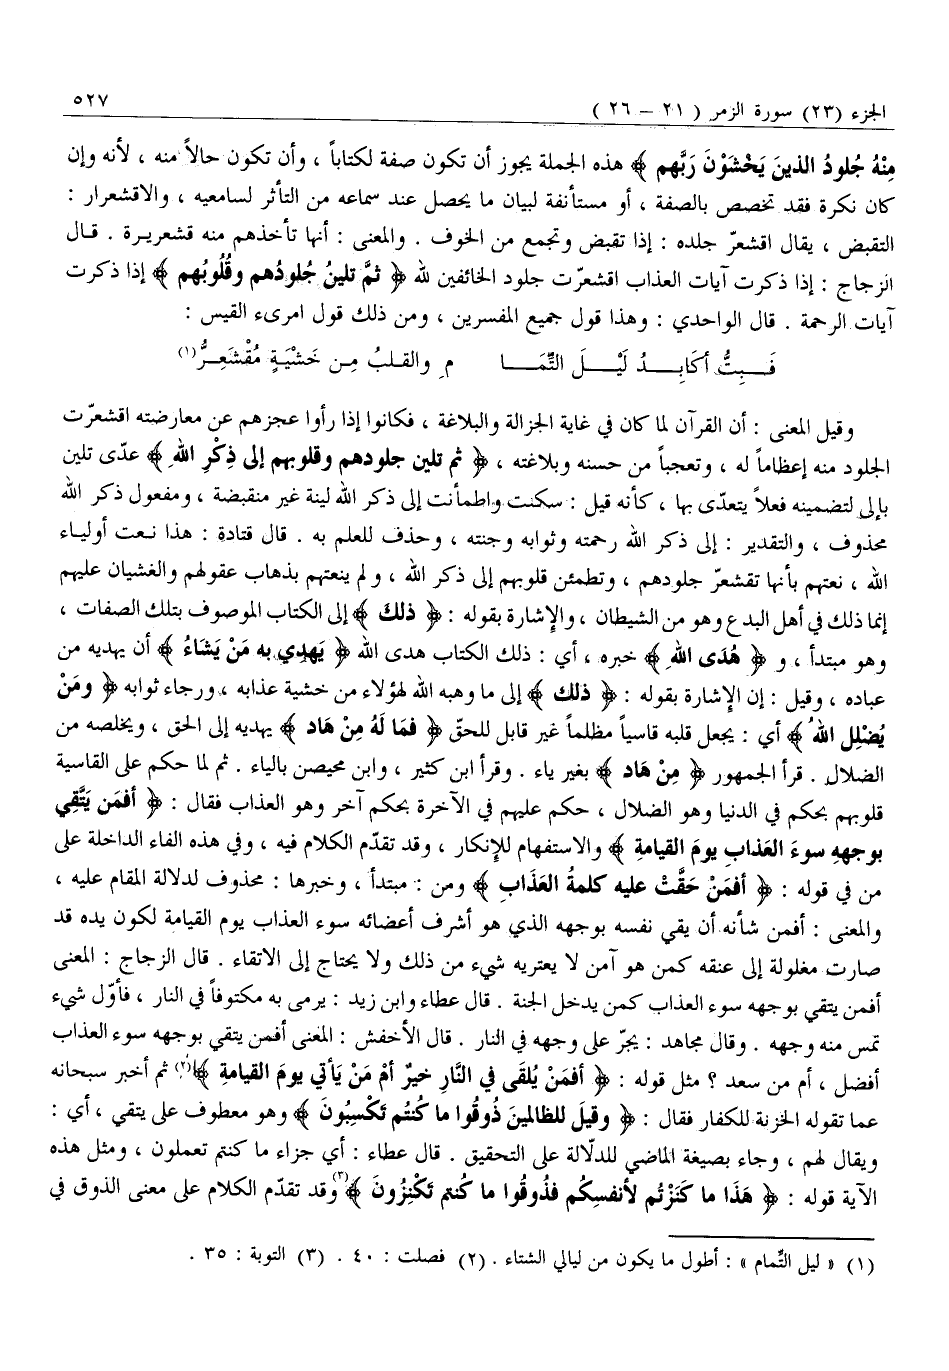 الجزء (٢٣) سورة الزمر ( ٢١ – ٢٦ )
٥٢٧
مِنْهُ جُلودُ الذينَ يَخْشَوْنَ رَبَّهم ﴾ هذه الجملة يجوز أن تكون صفة لكتاباً ، وأن تكون حالاً منه ، لأنه وإن
كان نكرة فقد تخصص بالصفة ، أو مستأنفة لبيان ما يحصل عند سماعه من التأثر لسامعيه ، والاقشعرار :
التقبض ، يقال اقشعرّ جلده : إذا تقبض وتجمع من الخوف . والمعنى : أنها تأخذهم منه قشعريرة . قال
الزجاج : إذا ذكرت آيات العذاب اقشعرّت جلود الخائفين لله ﴿ ثمَّ تلينُ جُلودُهم وقُلُوبُهم ﴾ إذا ذكرت
آيات الرحمة . قال الواحدي : وهذا قول جميع المفسرين ، ومن ذلك قول امرىء القيس :
فَـبِتُّ أكَابِـدُ لَيْـلَ التِّمَـا م والقلبُ مِـن خَشْيَةٍ مُقْشَعِـرُّ(١)
وقيل المعنى : أن القرآن لما كان في غاية الجزالة والبلاغة ، فكانوا إذا رأوا عجزهم عن معارضته اقشعرّت
الجلود منه إعظاماً له ، وتعجباً من حسنه وبلاغته ، ﴿ ثم تلين جلودهم وقلوبهم إلى ذِكْرِ اللهِ ﴾ عدّى تلين
بإلى لتضمينه فعلاً يتعدّى بها ، كأنه قيل : سكنت واطمأنت إلى ذكر الله لينة غير منقبضة ، ومفعول ذكر الله
محذوف ، والتقدير : إلى ذكر الله رحمته وثوابه وجنته ، وحذف للعلم به . قال قتادة : هذا نعت أولياء
الله ، نعتهم بأنها تقشعرّ جلودهم ، وتطمئن قلوبهم إلى ذكر الله ، ولم ينعتهم بذهاب عقولهم والغشيان عليهم
إنما ذلك في أهل البدع وهو من الشيطان ، والإشارة بقوله : ﴿ ذلك ﴾ إلى الكتاب الموصوف بتلك الصفات ،
وهو مبتدأ ، و ﴿ هُدَى اللهِ ﴾ خبره ، أي : ذلك الكتاب هدى الله ﴿ يَهدِي به مَنْ يَشَاءُ ﴾ أن يهديه من
عباده ، وقيل : إن الإشارة بقوله : ﴿ ذلك ﴾ إلى ما وهبه الله لهؤلاء من خشية عذابه ، ورجاء ثوابه ﴿ ومَنْ
يُضْلِل اللهُ ﴾ أي : يجعل قلبه قاسياً مظلماً غير قابل للحقّ ﴿ فَمَا لَهُ مِنْ هَاد ﴾ يهديه إلى الحق ، ويخلصه من
الضلال . قرأ الجمهور ﴿ مِنْ هَاد ﴾ بغير ياء . وقرأ ابن كثير ، وابن محيصن بالياء . ثم لما حكم على القاسية
قلوبهم بحكم في الدنيا وهو الضلال ، حكم عليهم في الآخرة بحكم آخر وهو العذاب فقال : ﴿ أفمَن يَتَّقِي
بوجههِ سوءَ العَذابِ يومَ القيامةِ ﴾ والاستفهام للإنكار ، وقد تقدّم الكلام فيه ، وفي هذه الفاء الداخلة على
من في قوله : ﴿ أفمَنْ حَقَّتْ عليه كلمةُ العَذَابِ ﴾ ومن : مبتدأ ، وخبرها : محذوف لدلالة المقام عليه ،
والمعنى : أفمن شأنه أن يقي نفسه بوجهه الذي هو أشرف أعضائه سوء العذاب يوم القيامة لكون يده قد
صارت مغلولة إلى عنقه كمن هو آمن لا يعتريه شيء من ذلك ولا يحتاج إلى الاتقاء . قال الزجاج : المعنى
أفمن يتقي بوجهه سوء العذاب كمن يدخل الجنة . قال عطاء وابن زيد : يرمى به مكتوفاً في النار ، فأوّل شيء
تمس منه وجهه . وقال مجاهد : يجرّ على وجهه في النار . قال الأخفش : المعنى أفمن يتقي بوجهه سوء العذاب
أفضل ، أم من سعد ؟ مثل قوله : ﴿ أفمَنْ يُلقَى في النَّارِ خيرٌ أمْ مَنْ يَأتي يومَ القيامةِ ﴾(٢) ثم أخبر سبحانه
عما تقوله الخزنة للكفار فقال : ﴿ وقيلَ للظالمينَ ذُوقُوا ما كُنتُم تَكْسِبُونَ ﴾ وهو معطوف على يتقي ، أي :
ويقال لهم ، وجاء بصيغة الماضي للدلّالة على التحقيق . قال عطاء : أي جزاء ما كنتم تعملون ، ومثل هذه
الآية قوله : ﴿ هَذَا ما كَنَزْتُم لأنفسِكُم فذُوقُوا ما كُنتم تَكْنِزُونَ ﴾(٣) وقد تقدّم الكلام على معنى الذوق في
(١) « ليل التِّمام » : أطول ما يكون من ليالي الشتاء . (٢) فصلت : ٤٠ . (٣) التوبة : ٣٥ .